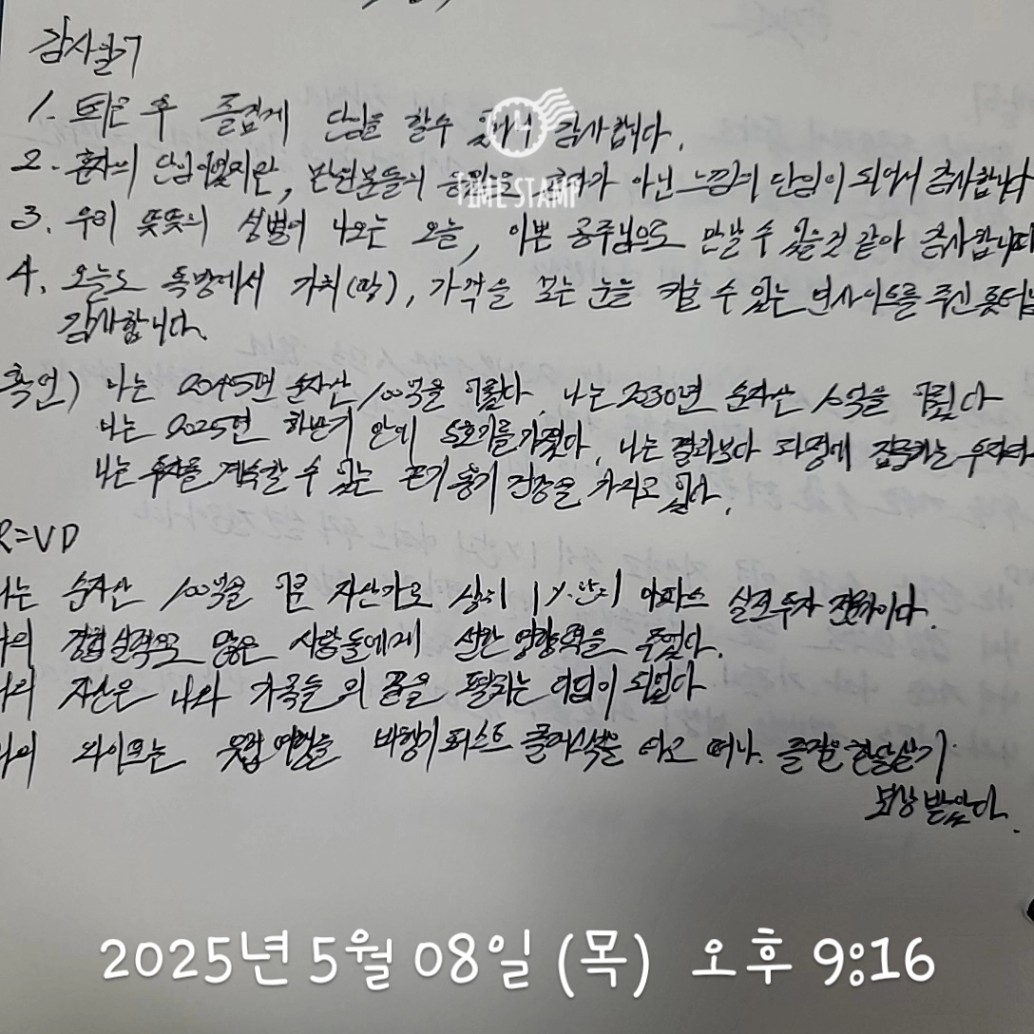 감사일기
1. 퇴근 후 즐겁게 단임을 할 수 있 감사합니다.
TIME STAMP
2. 혼자의 단임이었지만, 반원분들의 혼자가 아닌 느낌의 단임이 되어서 감사합니다
3. 우리 뜻뜻의 성별이 나오는 오늘, 이쁜 공주님으로 만날 수 있을것 같아 감사합니다
4. 오늘도 독방에서 가치(땅), 가격을 보는 눈을 키울 수 있는 인사이트를 주신 튜터님
감사합니다.
확언) 나는 2045년 순자산 100억을 이뤘다. 나는 2030년 순자산 10억을 이뤘다
나는 2025년 하반기 안에 5호기를 가졌다, 나는 결과보다 과정에 집중하는 투자자
나는 투자를 계속할 수 있는 끈기 용기 건강을 가지고 있다.
R=VD
나는 순자산 100억을 이룬 자산가로 상위 1% 안의 아파트 실전투자 전문가이다.
나의 경험 실력으로 많은 사람들에게 선한 영향력을 주었다.
나의 자산은 나와 가족들의 꿈을 펼치는 이 되었다
나의 와이프는 유럽여행을 비행기 퍼스트 클래스석을 타고 떠나 즐거운 한달살기
보상 받았다.
2025년 5월 08일 (목) 오후 9:16